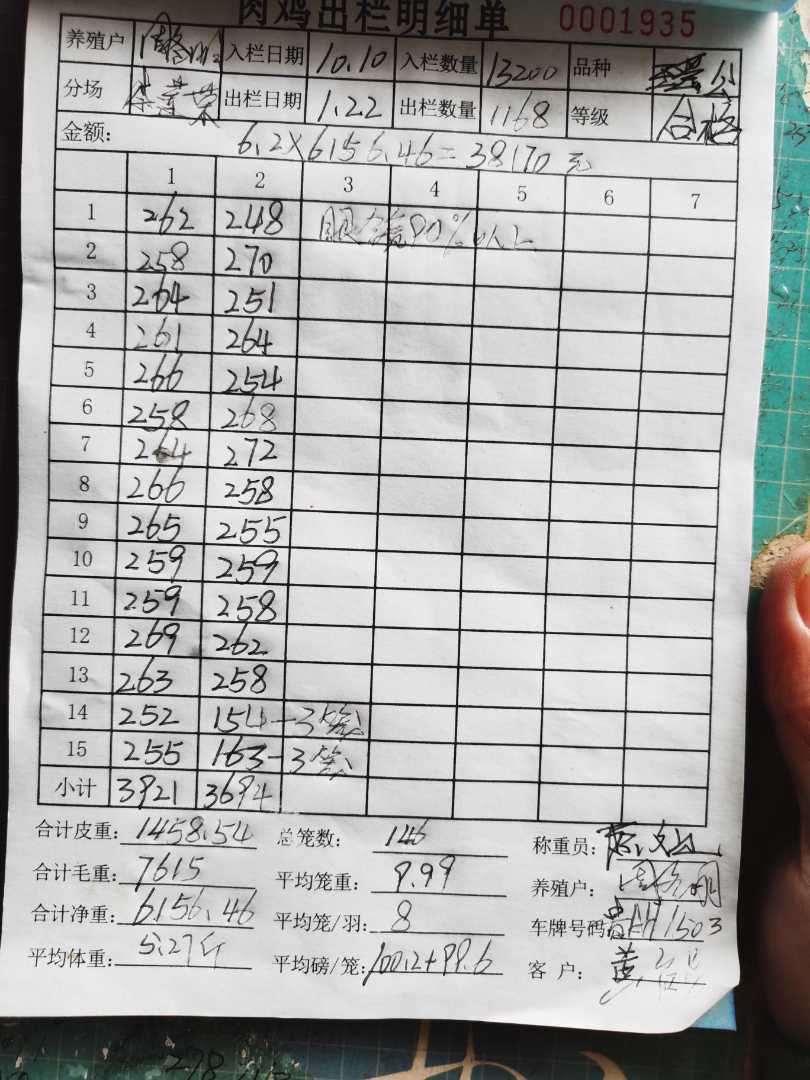 肉鸡出栏明细单 0001935
养殖户 入栏日期 10.10 入栏数量 13200 品种
分场 出栏日期 1.22 出栏数量 1168 等级 合格
金额: 6.2×6156.46=38170元
1 2 3 4 5 6 7
1 262 248 90%以上
2 258 270
3 264 251
4 261 264
5 266 254
6 258 268
7 264 272
8 266 258
9 265 255
10 259 259
11 259 258
12 269 262
13 263 258
14 252 154-3笼
15 255 163-3笼
小计 3921 3694
合计皮重: 1458.54 总笼数: 146 称重员:
合计毛重: 7615 平均笼重: 9.99 养殖户:
合计净重: 6156.46 平均笼/羽: 8 车牌号码
平均体重: 5.27斤 平均磅/笼: 100.2+99.6 客户: